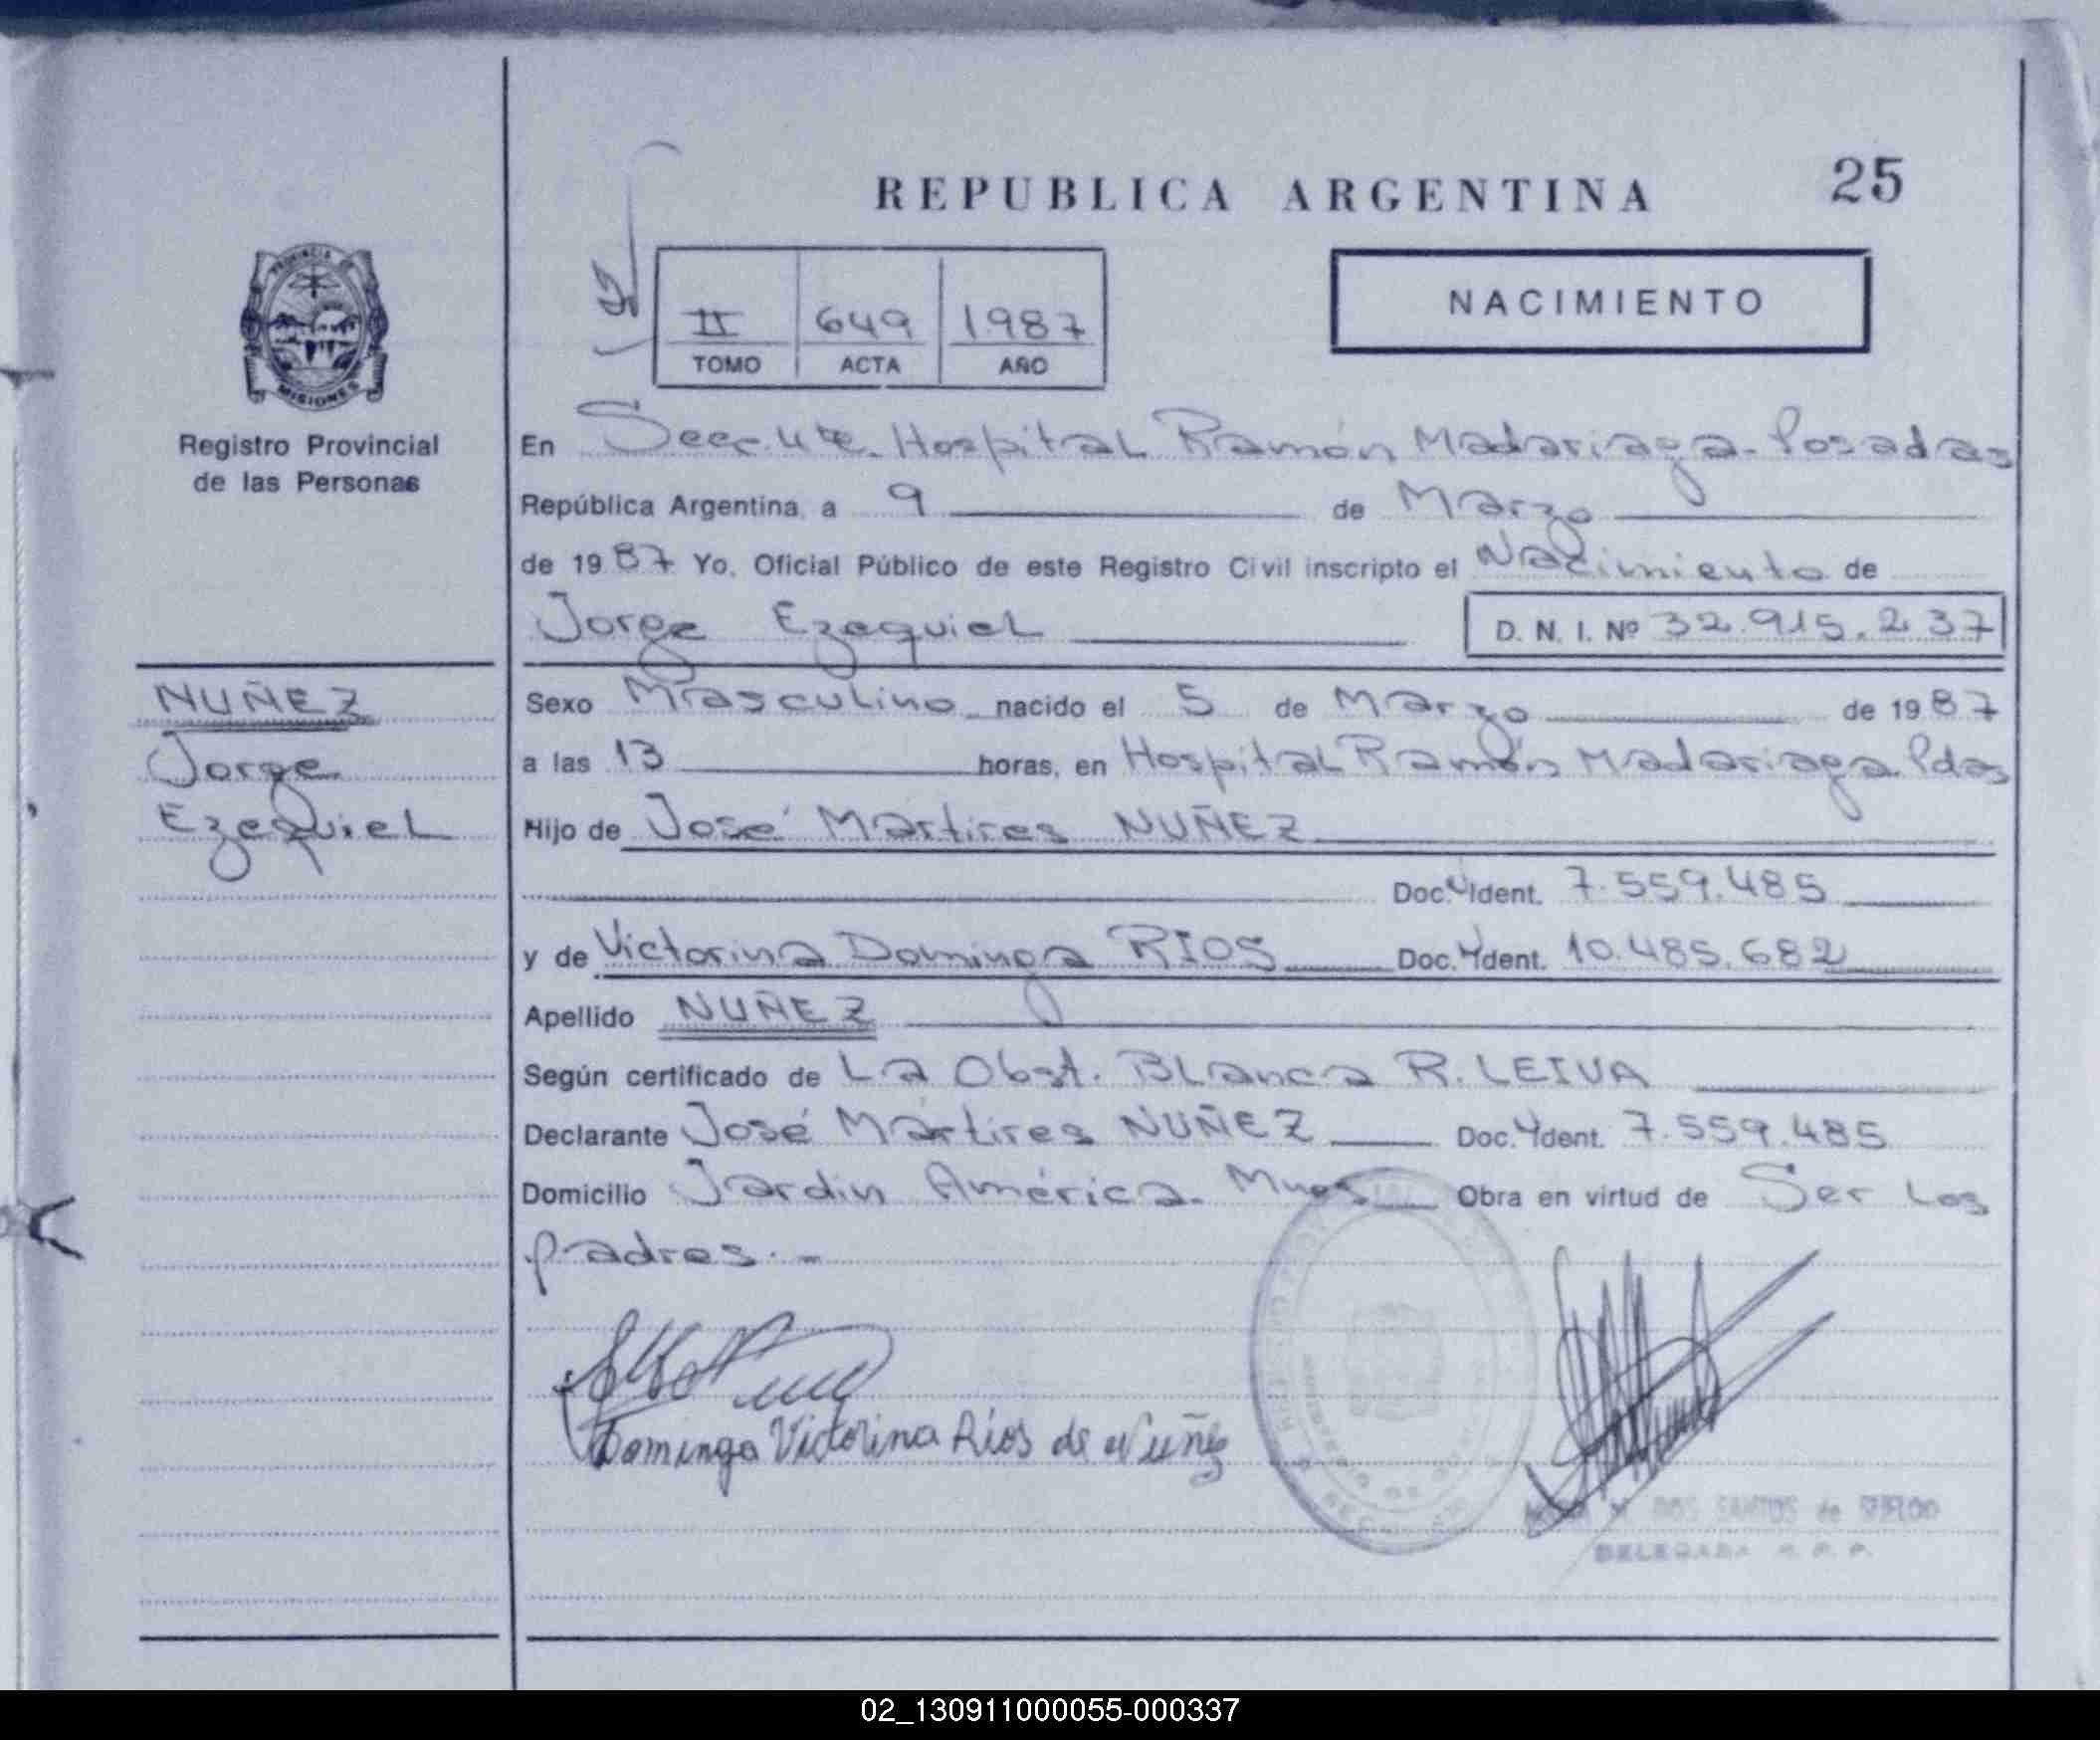 REPUBLICA ARGENTINA
25
PROVINCIA
MISIONES
Registro Provincial
de las Personas
II 649 1987
TOMO ACTA AÑO
NACIMIENTO
En Secc. 4te. Hospital Ramón Madariaga - Posadas
República Argentina, a 9 de Marzo
de 1987 Yo, Oficial Público de este Registro Civil inscripto el Nacimiento de
Jorge Ezequiel D. N. I. Nº 32.915.237
NUÑEZ
Jorge
Ezequiel
Sexo Masculino nacido el 5 de Marzo de 1987
a las 13 horas, en Hospital Ramón Madariaga Pdas
Hijo de José Martires NUÑEZ
Doc. Ident. 7.559.485
y de Victorina Dominga RIOS Doc. Ident. 10.485.682
Apellido NUÑEZ
Según certificado de La Obst. Blanca R. LEIVA
Declarante José Mártires NUÑEZ Doc. Ident. 7.559.485
Domicilio Jardin América - Mnes Obra en virtud de Ser Los
padres.-
Dominga Victorina Rios de Nuñez
DOS SANTOS de
DELEGADA R. P. P.
02_130911000055-000337